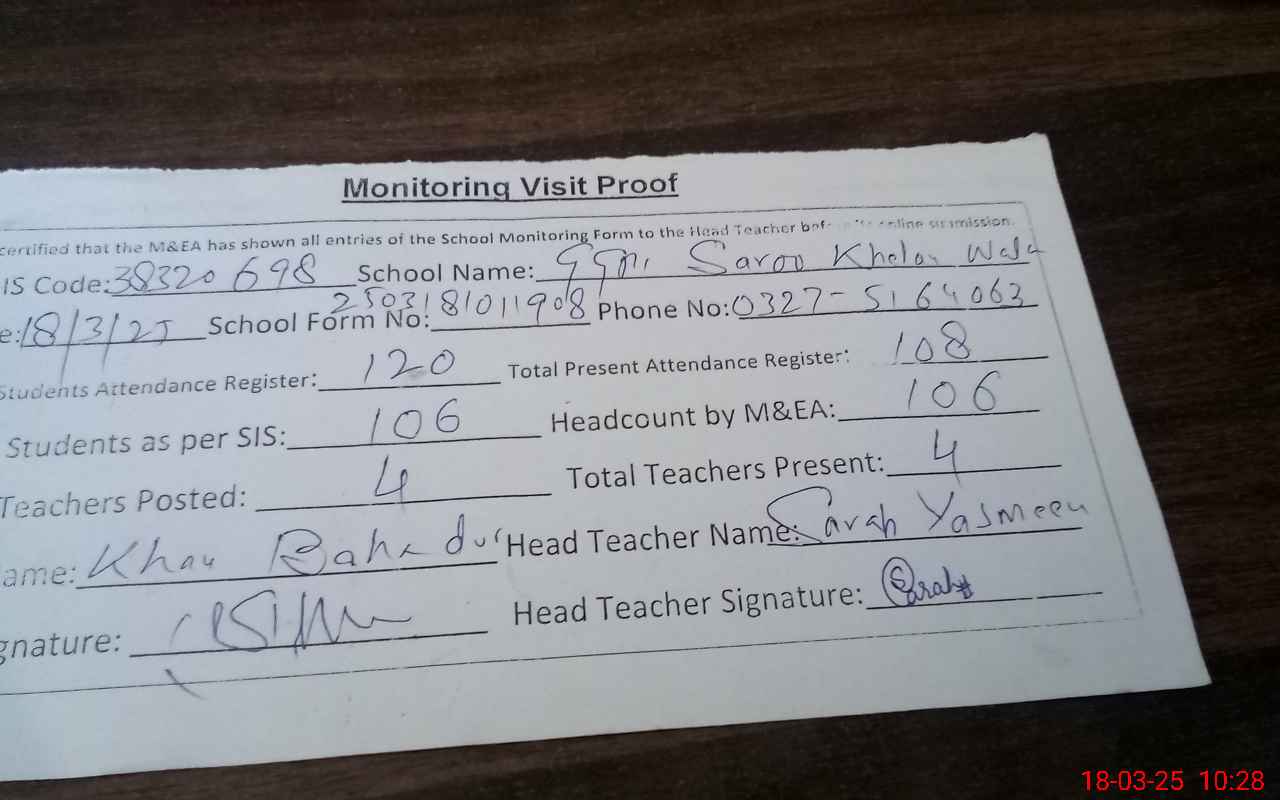 Monitoring Visit Proof
certified that the M&EA has shown all entries of the School Monitoring Form to the Head Teacher before its online submission.
IS Code: 38320698 School Name: GGPS Saroo Khelan Wala
e: 18/3/25 School Form No: 2503181011908 Phone No: 0327-5164063
Students Attendance Register: 120 Total Present Attendance Register: 108
Students as per SIS: 106 Headcount by M&EA: 106
Teachers Posted: 4 Total Teachers Present: 4
ame: Khan Bahadur Head Teacher Name: Sarah Yasmeen
gnature: Head Teacher Signature: Sarah
18-03-25 10:28